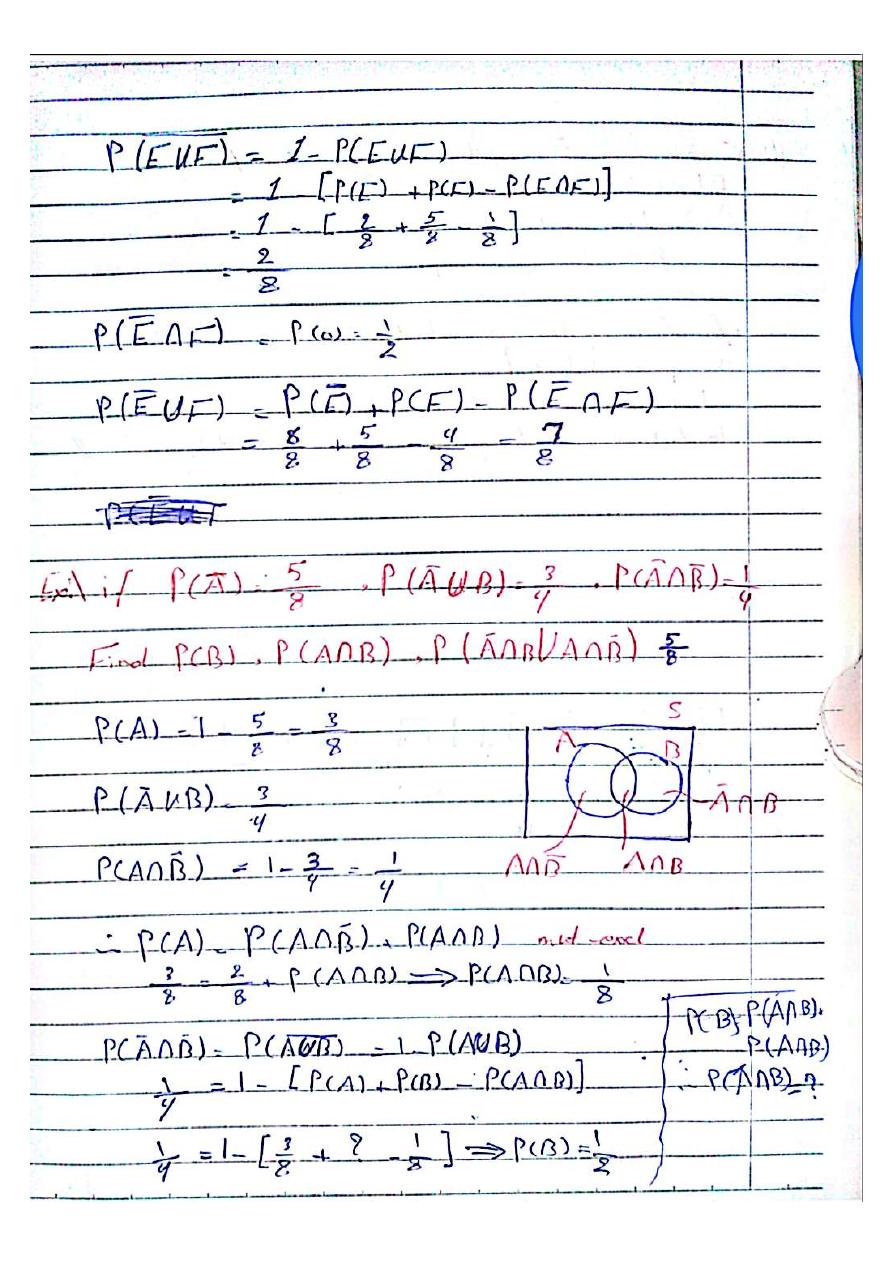 P(E̅U̅F̅) = 1 - P(EUF)
= 1 - [P(E) + P(F) - P(E∩F)]
= 1 - [2/8 + 5/8 - 1/8]
= 2/8
P(E̅∩F) = P(ω) = 1/2
P(E̅UF) = P(E̅) + P(F) - P(E̅∩F)
= 6/8 + 5/8 - 4/8 = 7/8
Ex\ if P(A̅) = 5/8 , P(A̅UB) = 3/4 , P(A̅∩B̅) = 1/4
Find P(B), P(A∩B), P(A̅∩BUA∩B̅) 5/8
P(A) = 1 - 5/8 = 3/8
S
A B
P(A̅UB) = 3/4
A̅∩B
P(A∩B̅) = 1 - 3/4 = 1/4
A∩B̅ A∩B
∴ P(A) = P(A∩B̅) + P(A∩B)
3/8 = 2/8 + P(A∩B) ⟹ P(A∩B) = 1/8
P(A̅∩B̅) = P(A̅U̅B̅) = 1 - P(AUB)
1/4 = 1 - [P(A) + P(B) - P(A∩B)]
1/4 = 1 - [3/8 + ? - 1/8] ⟹ P(B) = 1/2
P(B) = P(A̅∩B) +
P(A∩B)
∴ P(A̅∩B) = ?